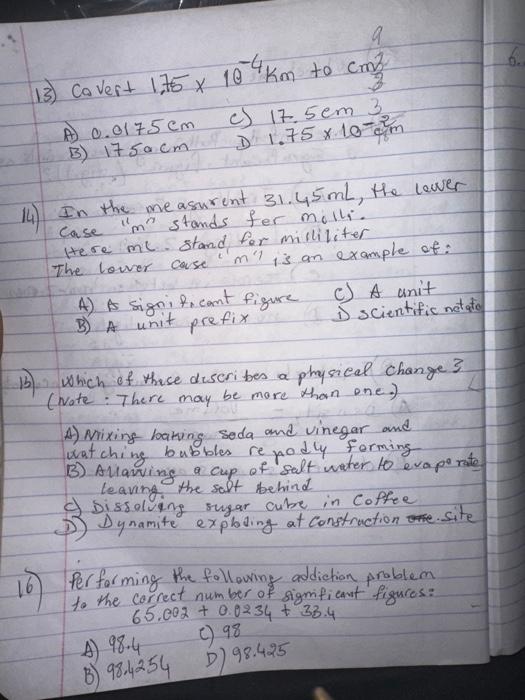 13) Covert 1.75 x 10-4 Km to cm?
A) 0.0175 cm C) 17.5 cm
B) 1750 cm D 1.75 x 10 cm
14) In the measurent 31.45 mL, the lower
case "m" stands for milli.
Here mL stand for milliliter
The lower case "m" is an example of:
A) A significant figure C) A unit
B) A unit prefix D scientific notatio
15) Which of these describes a physical change?
(Note: There may be more than one.)
A) Mixing baking soda and vinegar and
watching bubbles repadly forming
B) Allawing a cup of salt water to evaporate
leaving the salt behind
C) Dissolving sugar cube in Coffee
D) Dynamite exploding at construction site
16) Performing the following addiction problem
to the correct number of significant figures:
65.002 + 0.0234 + 33.4
A) 98.4 C) 98
B) 98.4254 D) 98.425
6.